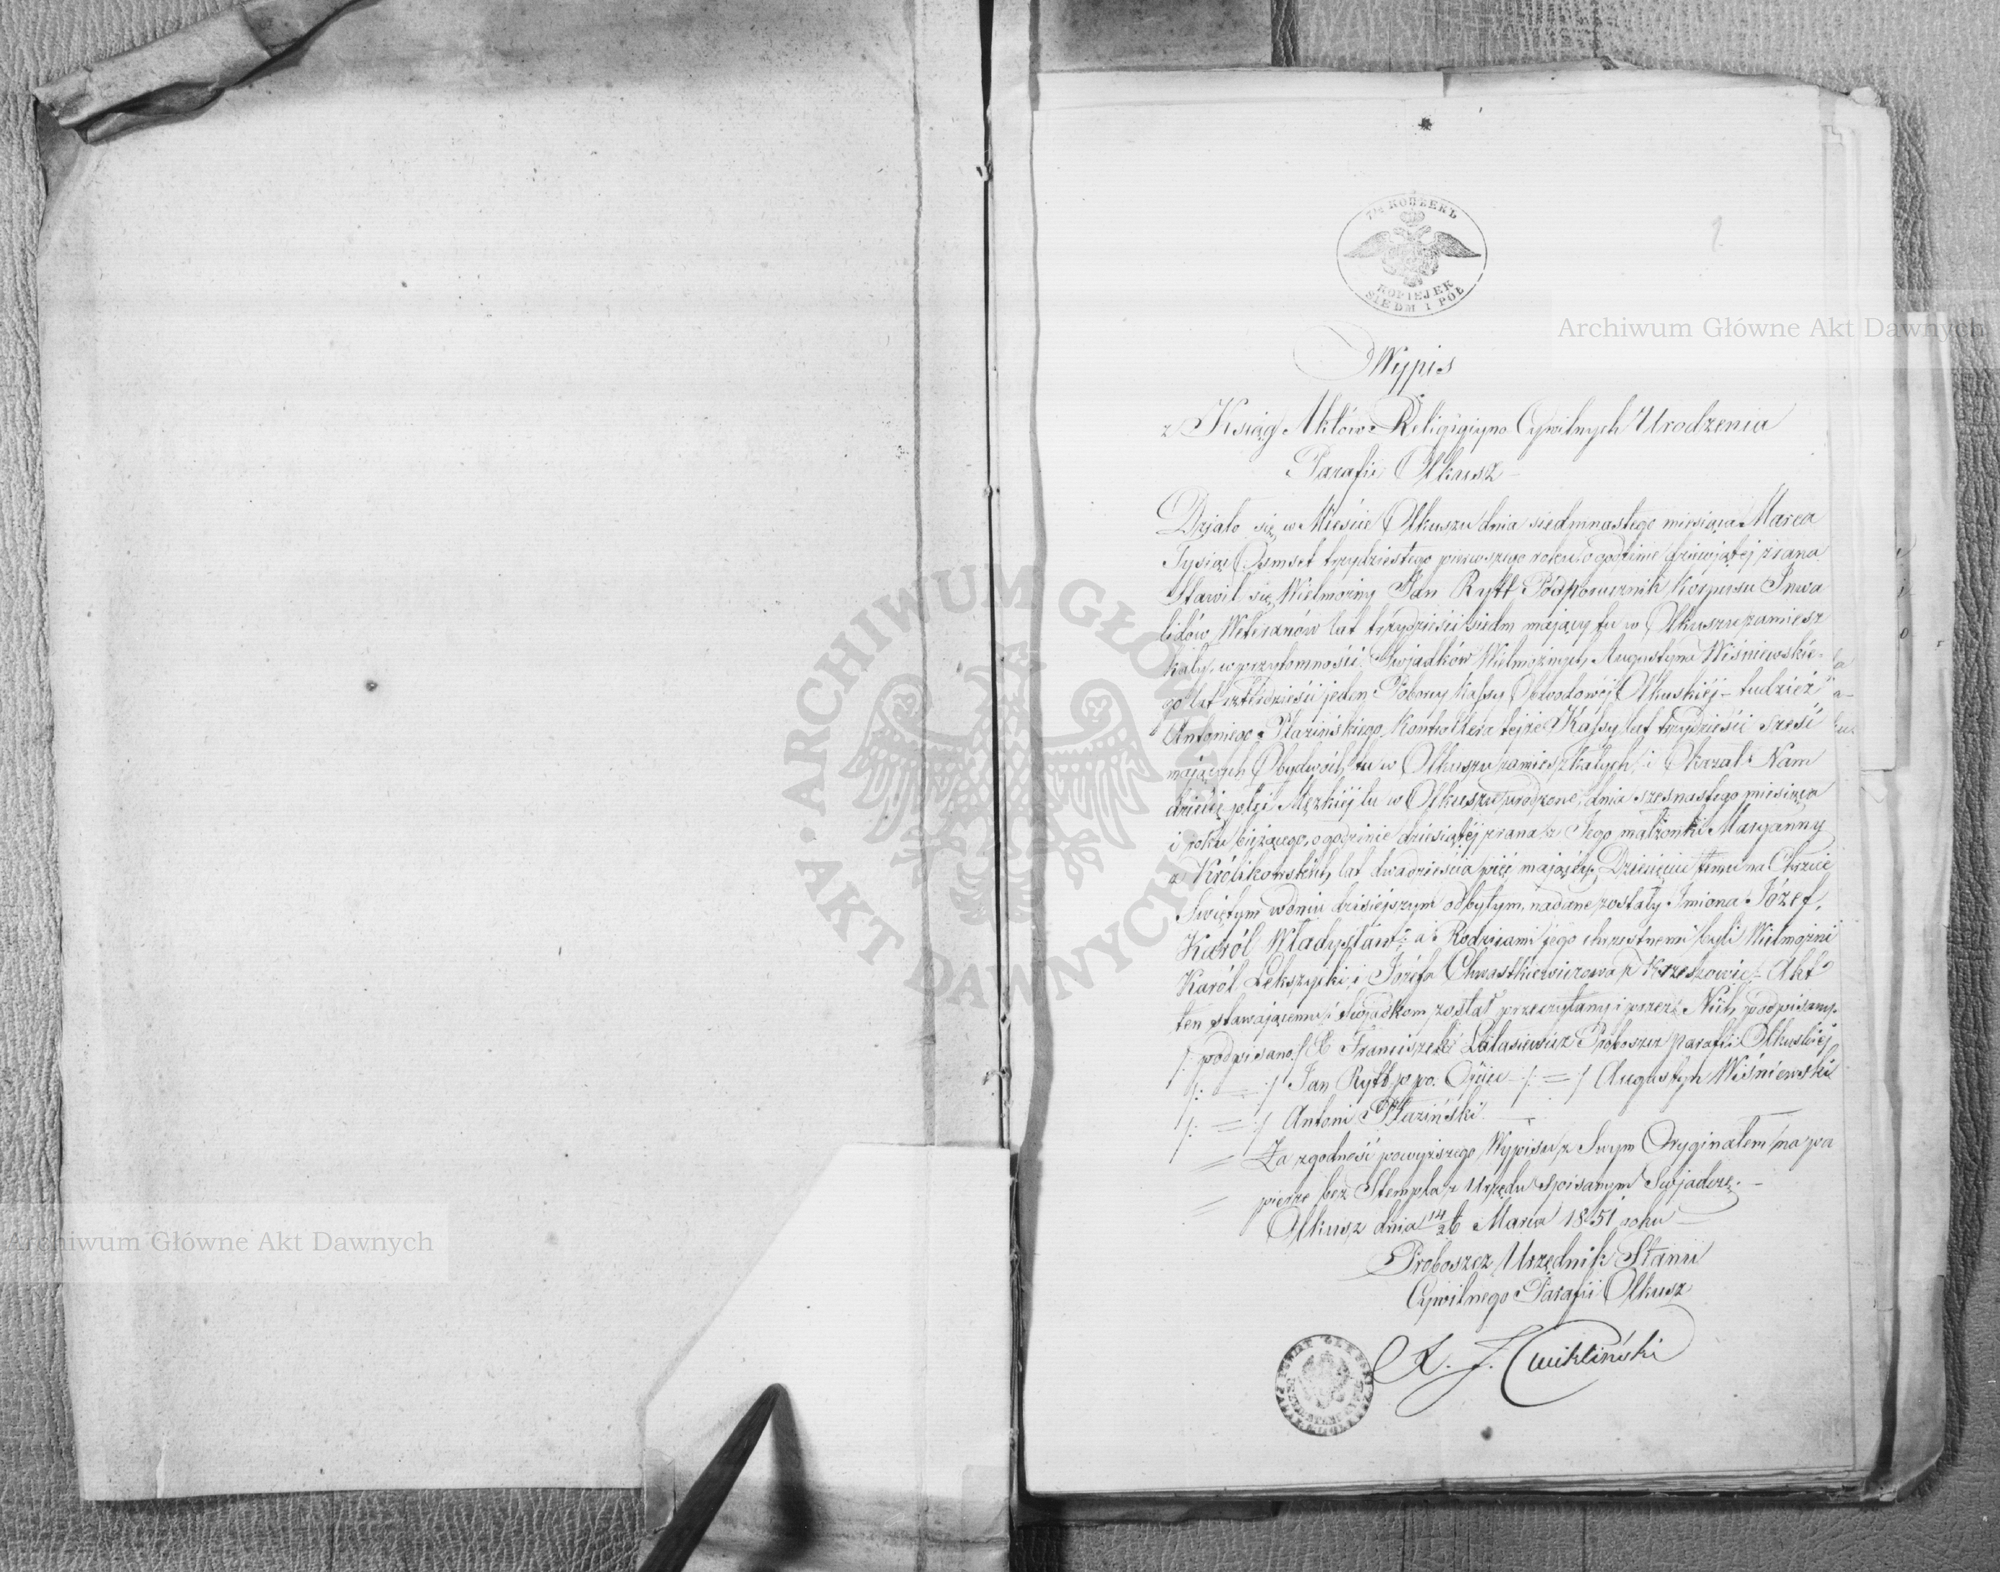 7½ КОПѢЕКЪ
KOPIEJEK
SIEDM I PÓŁ
Archiwum Główne Akt Dawnych
Wypis
z Ksiąg Aktów Religijno Cywilnych Urodzenia
Parafii Olkusz
Działo się w Mieście Olkuszu dnia siedmnastego miesiąca Marca
Tysiąc Osmset trzydziestego pierwszego roku o godzinie dziewiątej z rana
Stawił się Wielmożny Jan Rytt Podporucznik Korpusu Inwa
lidów Weteranów lat trzydzieści siedm mający tu w Olkuszu zamiesz
kały, w przytomności Swiadków Wielmożnych Augustyna Wiśniewskie-
go lat czterdzieści jeden Poborcy Kassy Obwodowéj Olkuskiéj – tudzież
Antoniego Płazińskiego, Kontrollera téjże Kassy lat trzydzieści sześć
mających Obydwóch tu w Olkuszu zamieszkałych, i Okazał Nam
dziecię płci Męzkiéj tu w Olkuszu urodzone dnia szesnastego miesiąca
i roku bieżącego, o godzinie dziesiątéj z rana z Jego małżonki Maryanny
z Królikowskich lat dwadzieścia pięć mającéj, Dziecięciu temu na Chrzcie
Swiętym w dniu dzisiejszym odbytym, nadane zostały Imiona Józef,
Karól Władysław; a Rodzicami jego chrzestnemi byli Wielmożni
Karól i Józefa Chwastkiewiczowa z Krzeszowic – Akt
ten stawającemu i Swiadkom został przeczytany i przez Nich podpisany.
/: podpisano / X Franciszek Proboszcz Parafii Olkuskiéj
/: = / Jan Rytt p. po. Ojciec – /: = / Augustyn Wiśniewski
/: = / Antoni Płaziński.
Za zgodność powyższego Wypisu z Swym Oryginałem na pa
pierze bez Stempla z Urzędu spisanym Swiadczę. –
Olkusz dnia 14/26 Marca 1851 roku
Proboszcz Urzędnik Stanu
Cywilnego Parafii Olkusz
X. J. Ćwikliński
ARCHIWUM GŁÓWNE AKT DAWNYCH
Archiwum Główne Akt Dawnych